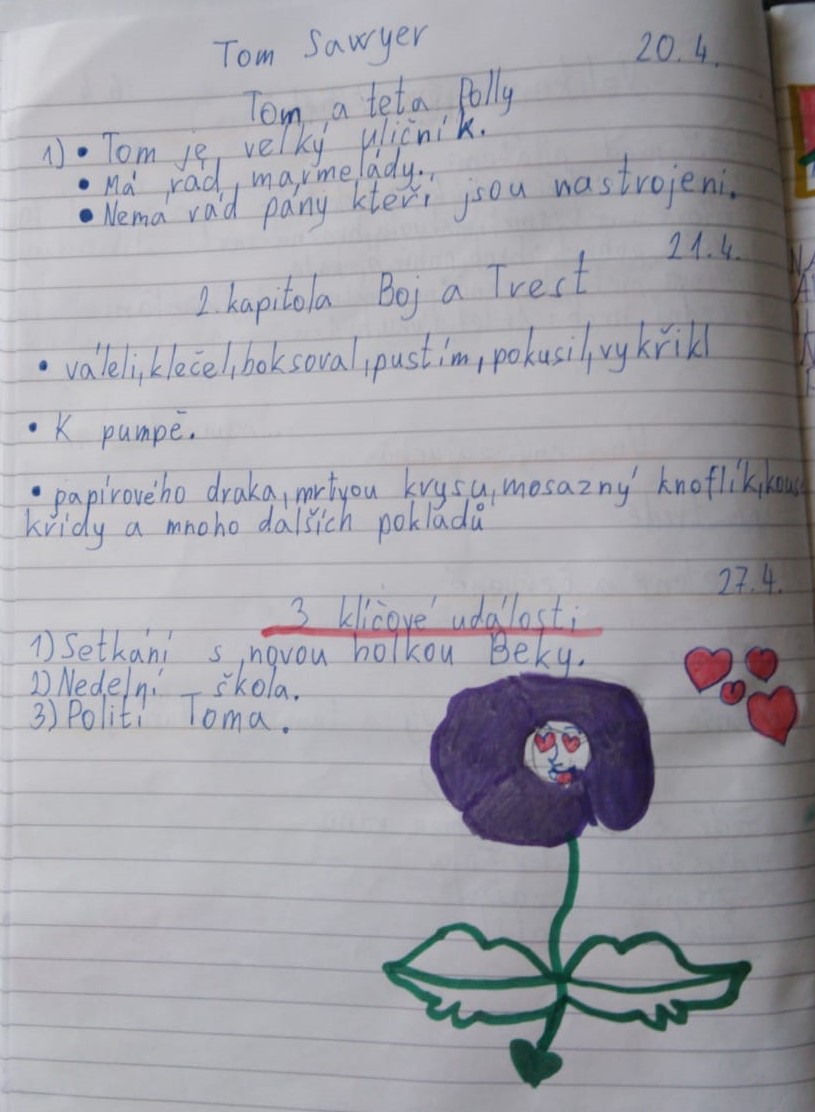 Tom Sawyer 20.4.
Tom a teta Polly
1) • Tom je velký uličník.
• Má rád marmelády.
• Nemá rád pány kteří jsou nastrojeni.
21.4.
2. kapitola Boj a Trest
• váleli, klečel, boksoval, pustím, pokusil, vykřikl
• K pumpě.
• papírového draka, mrtvou krysu, mosazný knoflík, kous
křídy a mnoho dalších pokladů
27.4.
3 klíčové události
1) Setkání s novou holkou Beky.
2) Nedelní škola.
3) Polití Toma.